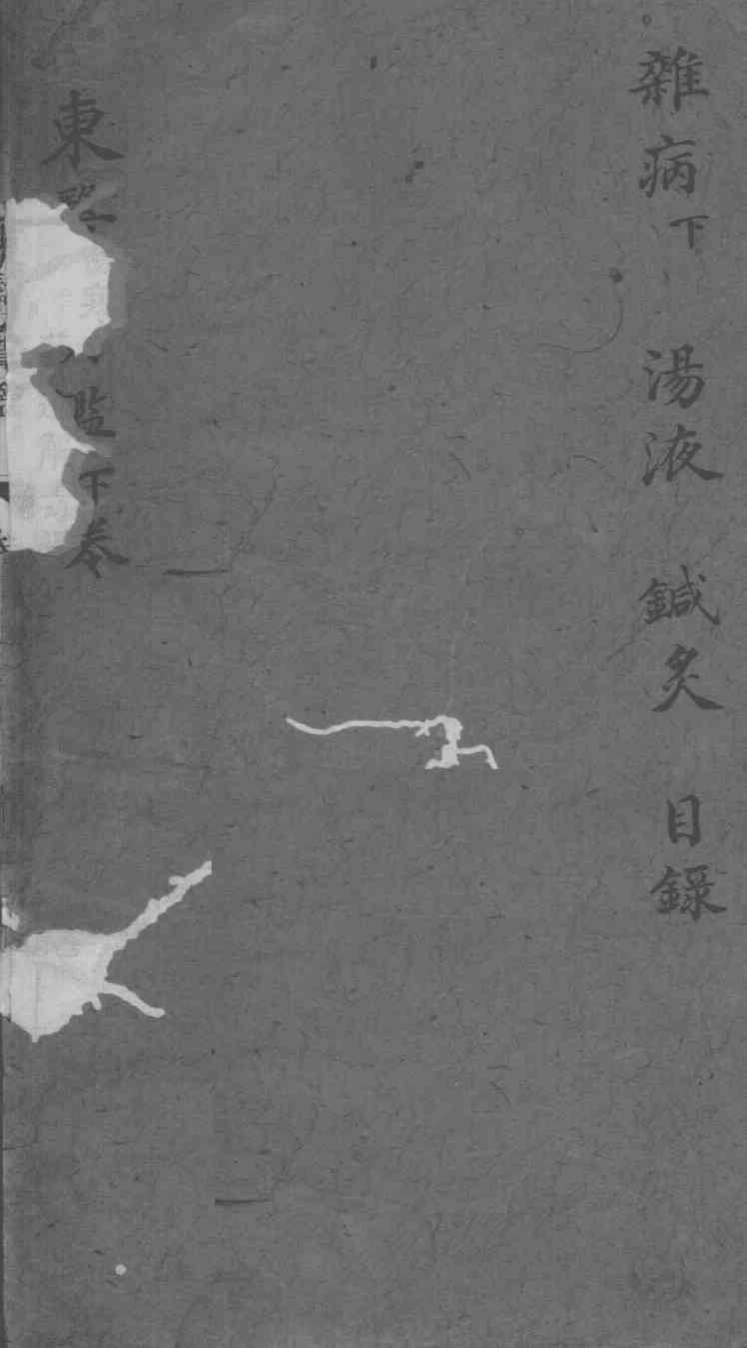 雜病下 湯液 鍼灸 目錄
東 监下卷